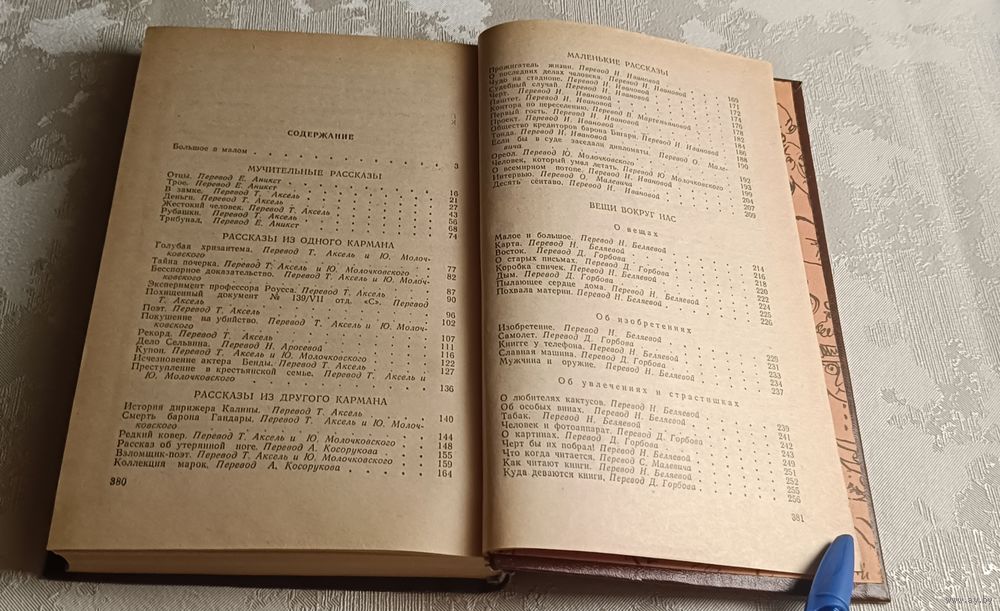 СОДЕРЖАНИЕ
Большое в малом 3
МУЧИТЕЛЬНЫЕ РАССКАЗЫ
Отцы. Перевод Е. Аникст 16
Трое. Перевод Е. Аникст 21
В замке. Перевод Т. Аксель 27
Деньги. Перевод Т. Аксель 43
Жестокий человек. Перевод Т. Аксель 56
Рубашки. Перевод Т. Аксель 68
Трибунал. Перевод Е. Аникст 74
РАССКАЗЫ ИЗ ОДНОГО КАРМАНА
Голубая хризантема. Перевод Т. Аксель и Ю. Молоч-
ковского 77
Тайна почерка. Перевод Т. Аксель и Ю. Молочковского 82
Бесспорное доказательство. Перевод Т. Аксель и Ю. Молоч-
ковского 87
Эксперимент профессора Роусса. Перевод Т. Аксель 90
Похищенный документ № 139/VII отд. «С». Перевод
Т. Аксель 96
Поэт. Перевод Т. Аксель 102
Покушение на убийство. Перевод Т. Аксель и Ю. Молоч-
ковского 107
Рекорд. Перевод Т. Аксель 111
Дело Сельвина. Перевод Н. Аросевой 116
Купон. Перевод Т. Аксель и Ю. Молочковского 122
Исчезновение актера Бенды. Перевод Т. Аксель 127
Преступление в крестьянской семье. Перевод Т. Аксель и
Ю. Молочковского 136
РАССКАЗЫ ИЗ ДРУГОГО КАРМАНА
История дирижера Калины. Перевод Т. Аксель 140
Смерть барона Гандары. Перевод Т. Аксель и Ю. Молоч-
ковского 144
Редкий ковер. Перевод Т. Аксель и Ю. Молочковского 148
Рассказ об утерянной ноге. Перевод А. Косорукова 155
Взломщик-поэт. Перевод Т. Аксель и Ю. Молочковского 159
Коллекция марок. Перевод А. Косорукова 164
380
МАЛЕНЬКИЕ РАССКАЗЫ
Прожигатель жизни. Перевод Н. Ивановой 169
О последних делах человека. Перевод И. Ивановой 171
Чудо на стадионе. Перевод И. Ивановой 172
Судебный случай. Перевод И. Ивановой 174
Черт. Перевод И. Ивановой 176
Паштет. Перевод И. Ивановой 178
Контора по переселению. Перевод В. Мартемьяновой 182
Первый гость. Перевод И. Ивановой 184
Проект. Перевод И. Ивановой 186
Общество кредиторов барона Бигари. Перевод И. Ивановой 188
Тонда. Перевод И. Ивановой 190
Если бы в суде заседали дипломаты. Перевод О. Мале-
вича 192
Ореол. Перевод Ю. Молочковского 193
Человек, который умел летать. Перевод Ю. Молочковского 199
О всемирном потопе. Перевод И. Ивановой 204
Интервью. Перевод О. Малевича 207
Десять сентаво. Перевод И. Ивановой 209
ВЕЩИ ВОКРУГ НАС
О вещах
Малое и большое. Перевод Н. Беляевой 214
Карта. Перевод Н. Беляевой 216
Восток. Перевод Д. Горбова 218
О старых письмах. Перевод Д. Горбова 220
Коробка спичек. Перевод Н. Беляевой 222
Дым. Перевод Д. Горбова 224
Пылающее сердце дома. Перевод Н. Беляевой 225
Похвала материи. Перевод Н. Беляевой 226
Об изобретениях
Изобретение. Перевод Н. Беляевой 229
Самолет. Перевод Д. Горбова 231
Книгге у телефона. Перевод Н. Беляевой 233
Славная машина. Перевод Д. Горбова 234
Мужчина и оружие. Перевод Н. Беляевой 237
Об увлечениях и страстишках
О любителях кактусов. Перевод Н. Беляевой 239
Об особых винах. Перевод Н. Беляевой 241
Табак. Перевод Н. Беляевой 242
Человек и фотоаппарат. Перевод Д. Горбова 243
О картинах. Перевод Д. Горбова 249
Черт бы их побрал! Перевод Н. Беляевой 251
Что когда читается. Перевод С. Малевича 252
Как читают книги. Перевод Н. Беляевой 255
Куда деваются книги. Перевод Д. Горбова 256
381
www.ay.by